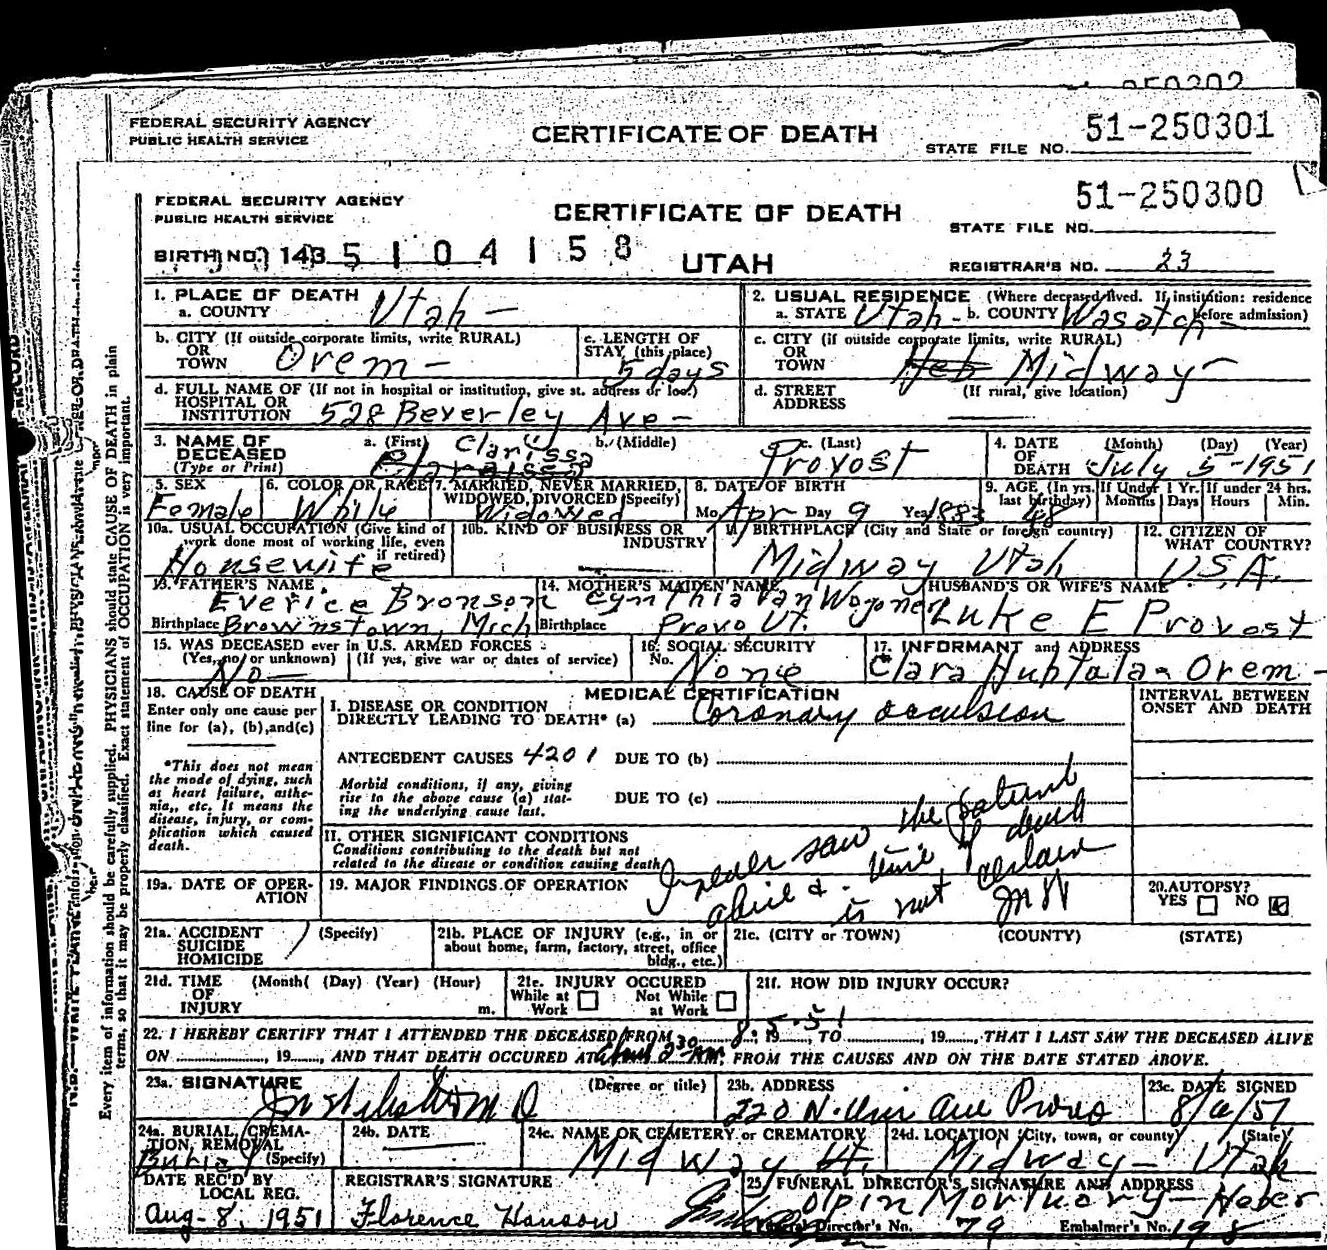 FEDERAL SECURITY AGENCY
PUBLIC HEALTH SERVICE
CERTIFICATE OF DEATH
51-250301
STATE FILE NO.
FEDERAL SECURITY AGENCY
PUBLIC HEALTH SERVICE
CERTIFICATE OF DEATH
51-250300
STATE FILE NO.
BIRTH NO. 143 5 1 0 4 1 5 8
UTAH
REGISTRAR'S NO. 23
1. PLACE OF DEATH
a. COUNTY Utah -
2. USUAL RESIDENCE (Where deceased lived. If institution: residence before admission)
a. STATE Utah - b. COUNTY Wasatch -
b. CITY (If outside corporate limits, write RURAL)
OR
TOWN Orem -
c. LENGTH OF
STAY (this place)
5 days
c. CITY (if outside corporate limits, write RURAL)
OR
TOWN Heb Midway -
d. FULL NAME OF (If not in hospital or institution, give st. address or loc.)
HOSPITAL OR
INSTITUTION 528 Beverley Ave -
d. STREET
ADDRESS
(If rural, give location)
3. NAME OF
DECEASED
(Type or Print)
a. (First) Clarissa
b. (Middle)
c. (Last)
Provost
4. DATE
OF
DEATH
(Month) (Day) (Year)
July 5 - 1951
5. SEX
Female
6. COLOR OR RACE
White
7. MARRIED, NEVER MARRIED,
WIDOWED, DIVORCED (Specify)
Widowed
8. DATE OF BIRTH
Mo. Apr Day 9 Year 1883
9. AGE (In yrs.
last birthday)
68
If Under 1 Yr.
Months Days
If under 24 hrs.
Hours Min.
10a. USUAL OCCUPATION (Give kind of
work done most of working life, even
if retired)
Housewife
10b. KIND OF BUSINESS OR
INDUSTRY
11. BIRTHPLACE (City and State or foreign country)
Midway Utah
12. CITIZEN OF
WHAT COUNTRY?
U.S.A.
13. FATHER'S NAME
Everice Bronson
Birthplace Brownstown, Mich
14. MOTHER'S MAIDEN NAME
Cynthia Van Wagoner
Birthplace Provo Ut.
HUSBAND'S OR WIFE'S NAME
Luke E Provost
15. WAS DECEASED ever in U.S. ARMED FORCES
(Yes, no, or unknown) (If yes, give war or dates of service)
No -
16. SOCIAL SECURITY
No. None
17. INFORMANT and ADDRESS
Clara Huhtala - Orem -
18. CAUSE OF DEATH
Enter only one cause per
line for (a), (b), and (c)
*This does not mean
the mode of dying, such
as heart failure, asthe-
nia, etc. It means the
disease, injury, or com-
plication which caused
death.
MEDICAL CERTIFICATION
I. DISEASE OR CONDITION
DIRECTLY LEADING TO DEATH* (a) Coronary occulsion
ANTECEDENT CAUSES 4201 DUE TO (b)
Morbid conditions, if any, giving
rise to the above cause (a) stat-
ing the underlying cause last.
DUE TO (c)
II. OTHER SIGNIFICANT CONDITIONS
Conditions contributing to the death but not
related to the disease or condition causing death
I never saw the patient
alive & time of death
is not certain
INTERVAL BETWEEN
ONSET AND DEATH
19a. DATE OF OPER-
ATION
19. MAJOR FINDINGS OF OPERATION
20. AUTOPSY?
YES NO
21a. ACCIDENT
SUICIDE
HOMICIDE
(Specify)
21b. PLACE OF INJURY (e.g., in or
about home, farm, factory, street, office
bldg., etc.)
21c. (CITY or TOWN) (COUNTY) (STATE)
21d. TIME
OF
INJURY
(Month) (Day) (Year) (Hour)
m.
21e. INJURY OCCURED
While at
Work
Not While
at Work
21f. HOW DID INJURY OCCUR?
22. I HEREBY CERTIFY THAT I ATTENDED THE DECEASED FROM 8.5.51 19, TO , 19, THAT I LAST SAW THE DECEASED ALIVE
ON , 19, AND THAT DEATH OCCURED AT about 2:30 AM, FROM THE CAUSES AND ON THE DATE STATED ABOVE.
23a. SIGNATURE (Degree or title)
M D
23b. ADDRESS
220 N. Univ Ave Provo
23c. DATE SIGNED
8/6/51
24a. BURIAL, CREMA-
TION, REMOVAL
(Specify)
Burial
24b. DATE
24c. NAME OR CEMETERY or CREMATORY
Midway Ut.
24d. LOCATION (City, town, or county) (State)
Midway - Utah
DATE REC'D BY
LOCAL REG.
Aug - 8, 1951
REGISTRAR'S SIGNATURE
Florence Hanson
25. FUNERAL DIRECTOR'S SIGNATURE AND ADDRESS
Olpin Mortuary - Heber
Funeral Director's No. 79 Embalmer's No. 198
Every item of information should be carefully supplied. PHYSICIANS should state CAUSE OF DEATH in plain
terms, so that it may be properly classified. Exact statement of OCCUPATION is very important.